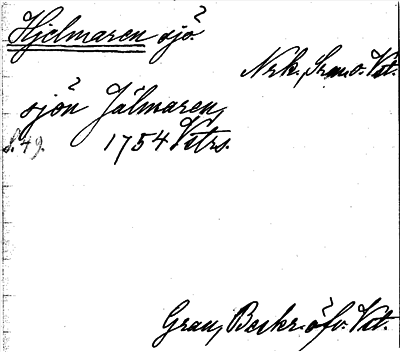 Hjelmaren sjö
Nrk. Srm. o. Vst.
sjön Jälmaren,
s. 49. 1754 Vstrs.
Grau, Beskr. öfv. Vst.